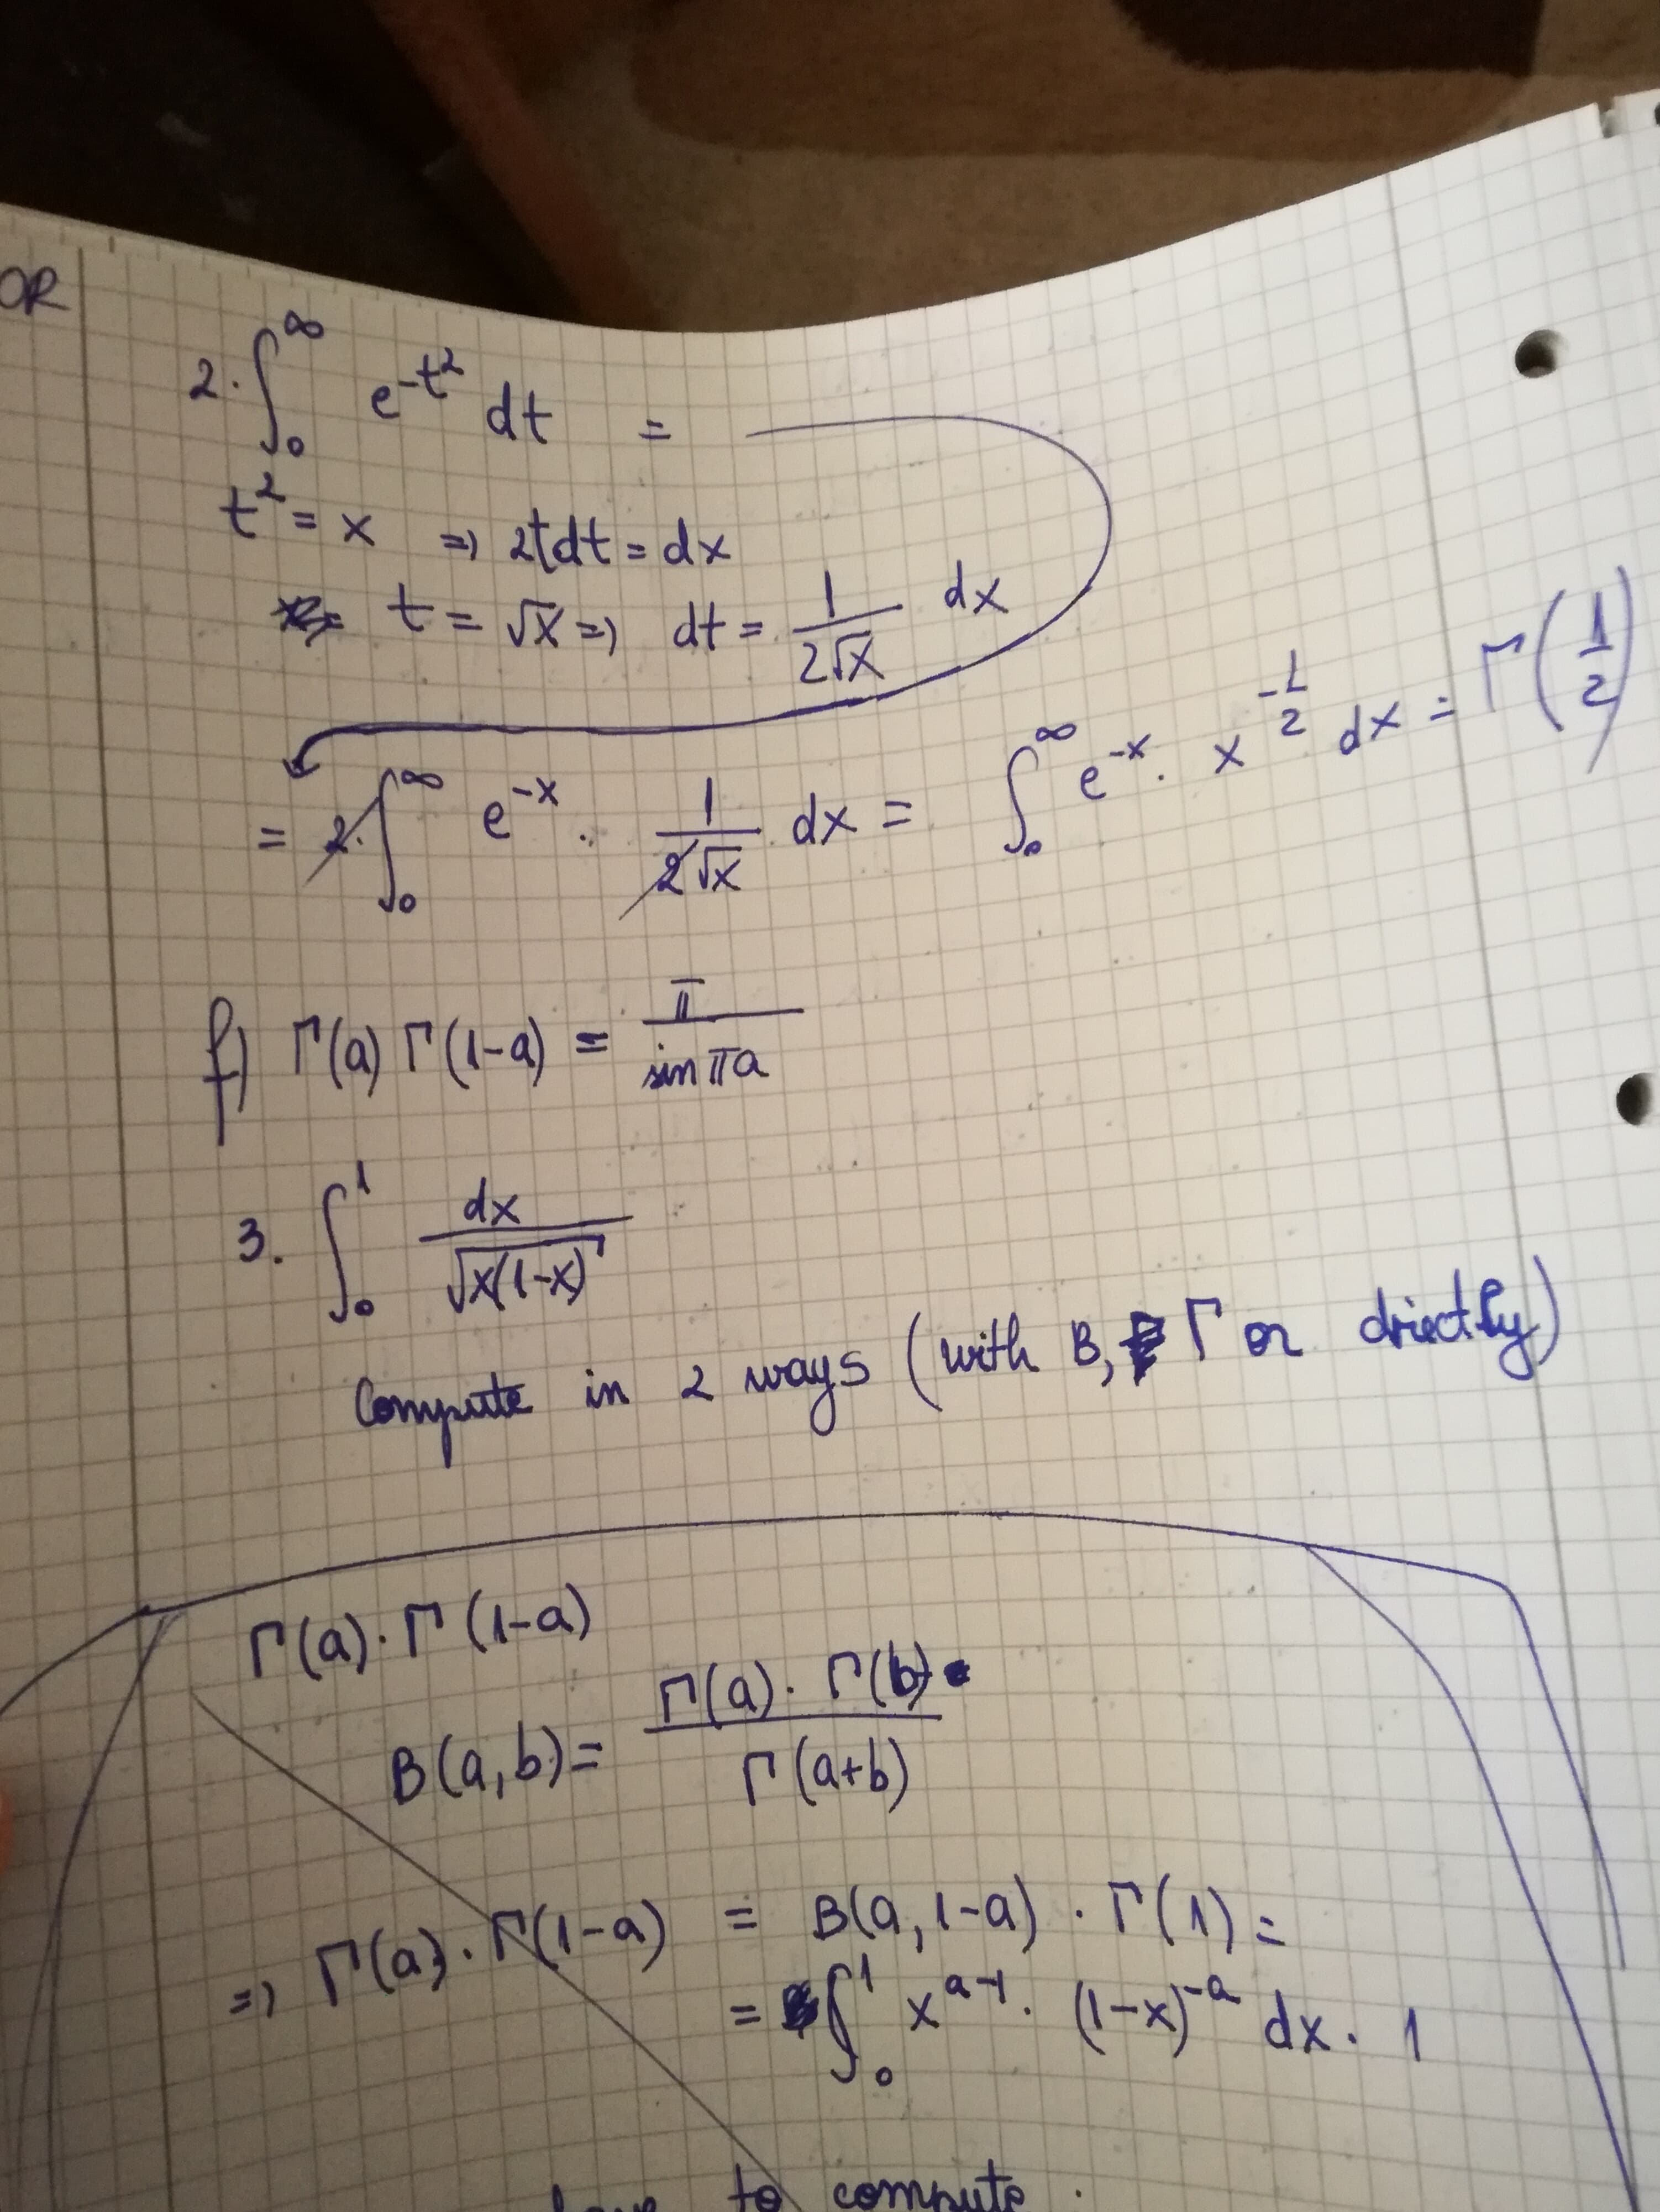 OR
2·∫₀^∞ e^{-t²} dt =
t² = x ⇒ 2tdt = dx
t = √x ⇒ dt = 1/(2√x) dx
= 2·∫₀^∞ e^{-x} · 1/(2√x) dx = ∫₀^∞ e^{-x} · x^{-1/2} dx = Γ(1/2)
f) Γ(a) Γ(1-a) = π/(sin πa)
3. ∫₀¹ dx/√(x(1-x))
Compute in 2 ways (with B, Γ or directly)
Γ(a)·Γ(1-a)
B(a,b) = (Γ(a)·Γ(b))/(Γ(a+b))
⇒ Γ(a)·Γ(1-a) = B(a,1-a)·Γ(1) =
= ∫₀¹ x^{a-1}·(1-x)^{-a} dx·1
to compute